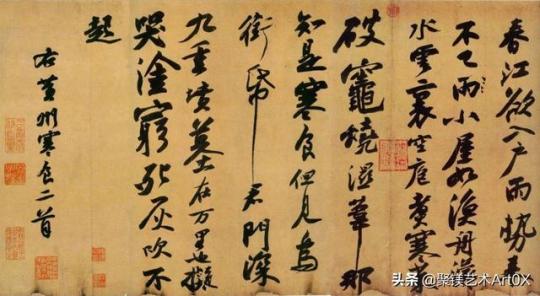 春江欲入戶雨勢來
不已雨小屋如漁舟濛
水雲裏空庖煮寒菜
破竈燒濕葦那
知是寒食但見烏
銜帋君門深
九重墳墓在万里也擬
哭塗窮死灰吹不
起
右黃州寒食二首
头条 @聚镁艺术Art0X